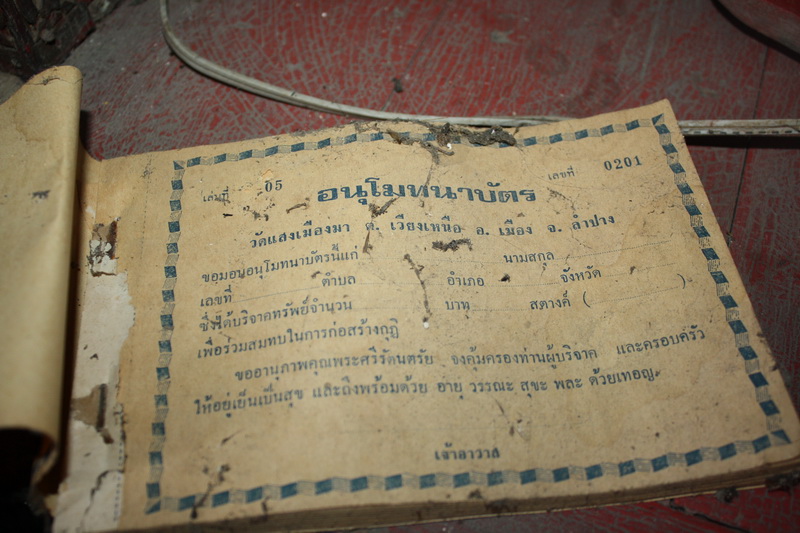 เล่มที่ 05 เลขที่ 0201
อนุโมทนาบัตร
วัดแสงเมืองมา ต. เวียงเหนือ อ. เมือง จ. ลำปาง
ขอมอบอนุโมทนาบัตรนี้แก่ นามสกุล
เลขที่ ตำบล อำเภอ จังหวัด
ซึ่งได้บริจาคทรัพย์จำนวน บาท สตางค์ ( )
เพื่อร่วมสมทบในการก่อสร้างกุฏิ
ขออานุภาพคุณพระศรีรัตนตรัย จงคุ้มครองท่านผู้บริจาค และครอบครัว
ให้อยู่เย็นเป็นสุข และถึงพร้อมด้วย อายุ วรรณะ สุขะ พละ ด้วยเทอญ.
เจ้าอาวาส